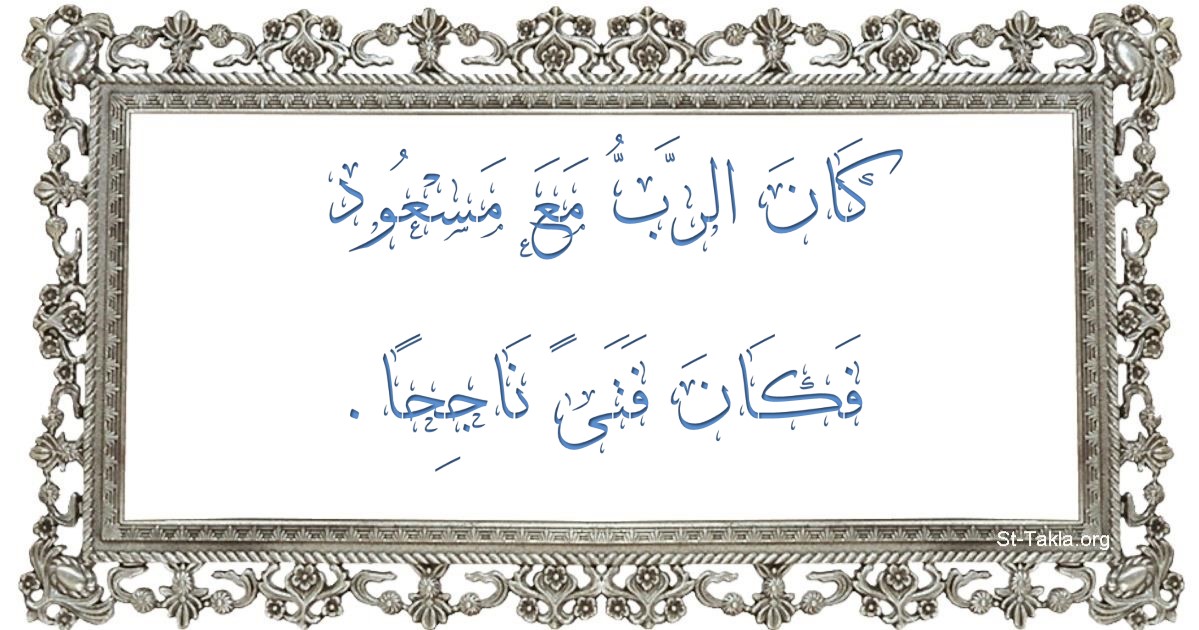 كَانَ الرَّبُّ مَعَ مَسْعُود
فَكَانَ فَتَىً نَاجِحًا.
St-Takla.org